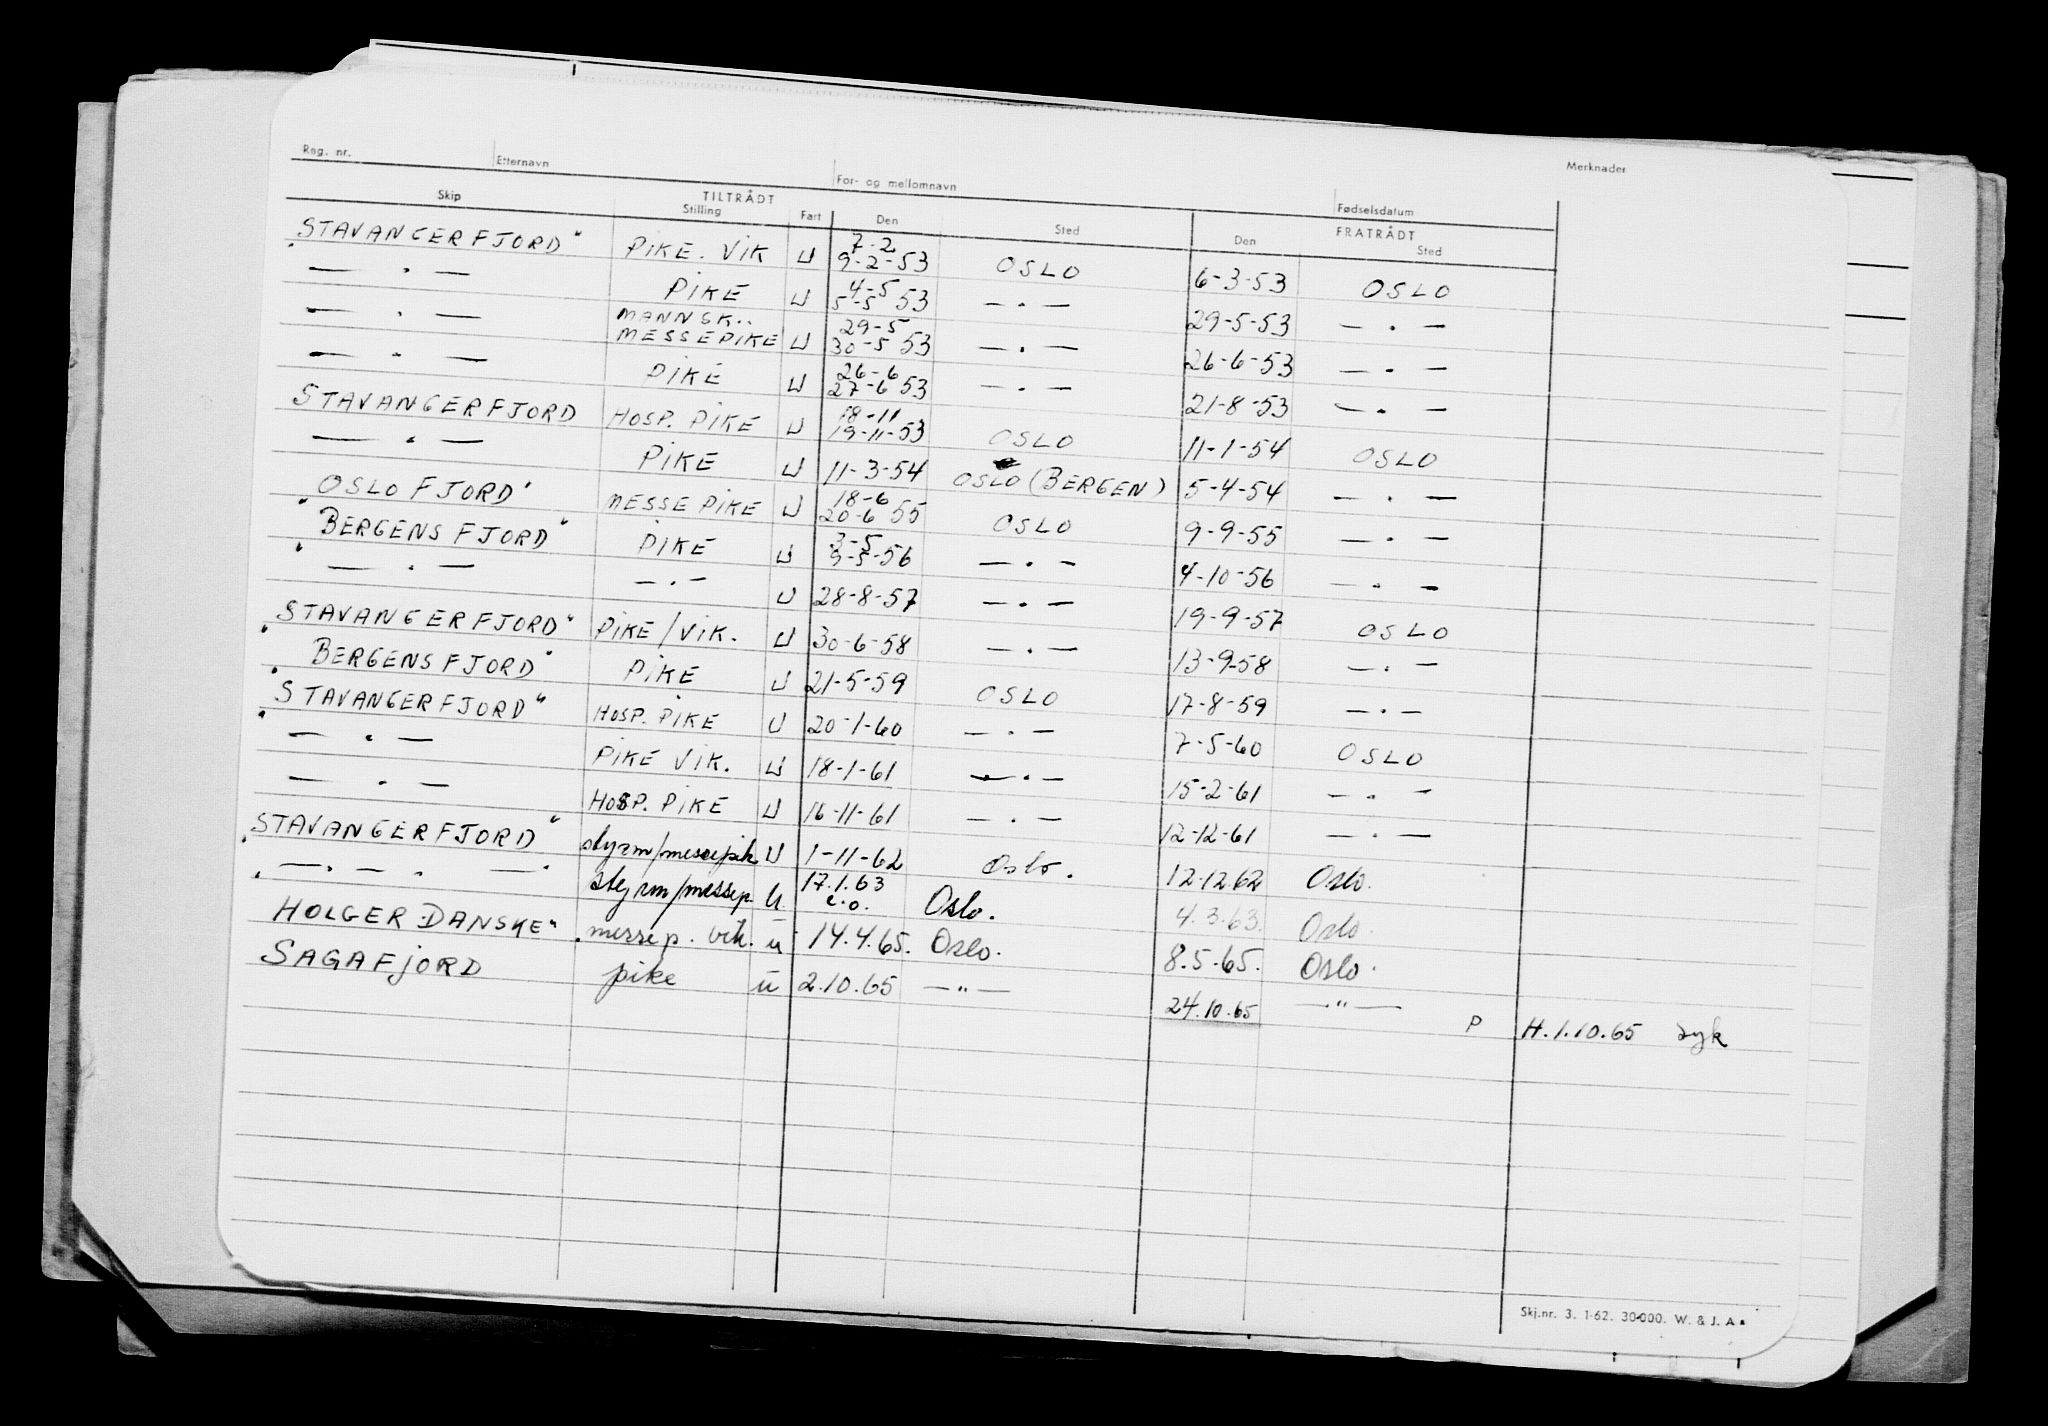 Reg. nr. Etternavn For- og mellomnavn Fødselsdatum Merknader
TILTRÅDT FRATRÅDT
Skip Stilling Fart Den Sted Den Sted
"STAVANGERFJORD" PIKE. VIK U 7-2 9-2-53 OSLO 6-3-53 OSLO
— " — PIKE U 4-5 5-5 53 — " — 29-5-53 — " —
— " — MANNSK.. MESSEPIKE U 29-5 30-5 53 — " — 26-6-53 — " —
— " — PIKE U 26-6 27-6 53 — " — 21-8-53 — " —
STAVANGERFJORD HOSP. PIKE U 18-11 19-11-53 OSLO 11-1-54 OSLO
— " — PIKE U 11-3-54 OSLO (BERGEN) 5-4-54 — " —
"OSLOFJORD" MESSEPIKE U 18-6 20-6 55 OSLO 9-9-55 — " —
"BERGENSFJORD" PIKE U 3-5 9-5-56 — " — 4-10-56 — " —
— " — — " — U 28-8-57 — " — 19-9-57 OSLO
"STAVANGERFJORD" PIKE/VIK. U 30-6-58 — " — 13-9-58 — " —
"BERGENSFJORD" PIKE U 21-5-59 OSLO 17-8-59 — " —
"STAVANGERFJORD" HOSP. PIKE U 20-1-60 — " — 7-5-60 OSLO
— " — PIKE VIK. U 18-1-61 — " — 15-2-61 — " —
— " — HOSP. PIKE U 16-11-61 — " — 12-12-61 — " —
"STAVANGERFJORD" styrm/messepik U 1-11-62 Oslo. 12.12.62 Oslo.
— " — " — " styrm/messep. U. 17.1.63 Oslo. 4.3.63. Oslo.
"HOLGER DANSKE" messep. vik. u 14.4.65. Oslo. 8.5.65. Oslo.
SAGAFJORD pike u 2.10.65 — " — 24.10.65 — " —
P H.1.10.65 syk
Skj.nr. 3. 1-62. 30.000. W. & J. A.